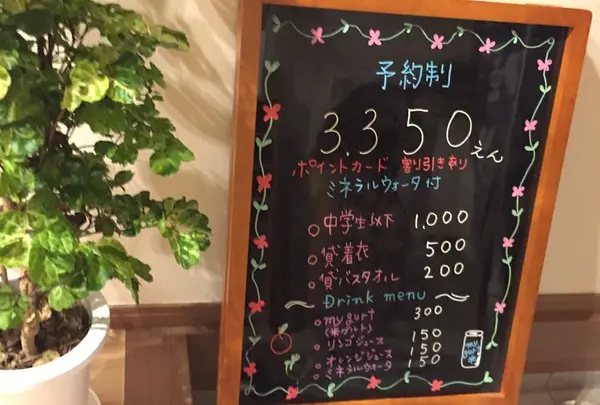 予約制
3.350えん
ポイントカード 割引きあり
ミネラルウォータ付
中学生以下 1,000
貸着衣 500
貸バスタオル 200
Drink menu
my gurt 300
(米グルト)
リンゴジュース 150
オレンジジュース 150
ミネラルウォータ 150
my
gurt
米